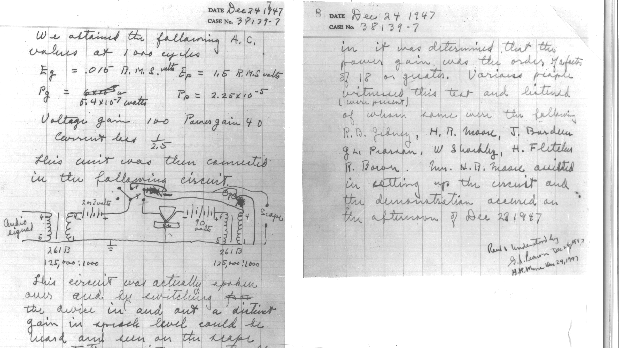 DATE Dec 24 1947
CASE No. 38139-7
We attained the following A.C.
values at 1000 cycles
Eg = .015 R.M.S. volts Ep = 1.5 R.M.S. volts
Pg = 5.4 x 10⁻⁷ watts Pp = 2.25 x 10⁻⁵
Voltage gain 100 Power gain 40
Current loss 1/2.5
This unit was then connected
in the following circuit.
Audio
signal
Scope
261B
125,000:1000
261B
125,000:1000
This circuit was actually spoken
over and by switching
the device in and out a distinct
gain in speech level could be
heard and seen on the scope
DATE Dec 24 1947
CASE No. 38139-7
in it was determined that the
power gain was the order of
of 18 or greater. Various people
witnessed this test and listened
(were present)
of whom some were the following
R.B. Gibney, H.R. Moore, J. Bardeen
G.L. Pearson, W Shockley, H. Fletcher
R. Bown. Mr. H.R. Moore assisted
in setting up the circuit and
the demonstration occurred on
the afternoon of Dec 23 1947
Read & understood by
G.L. Pearson Dec 24, 1947
H.R. Moore Dec 24, 1947